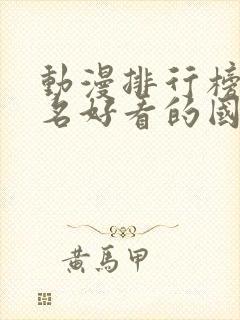 動漫排行榜
名好看的國
黃馬甲